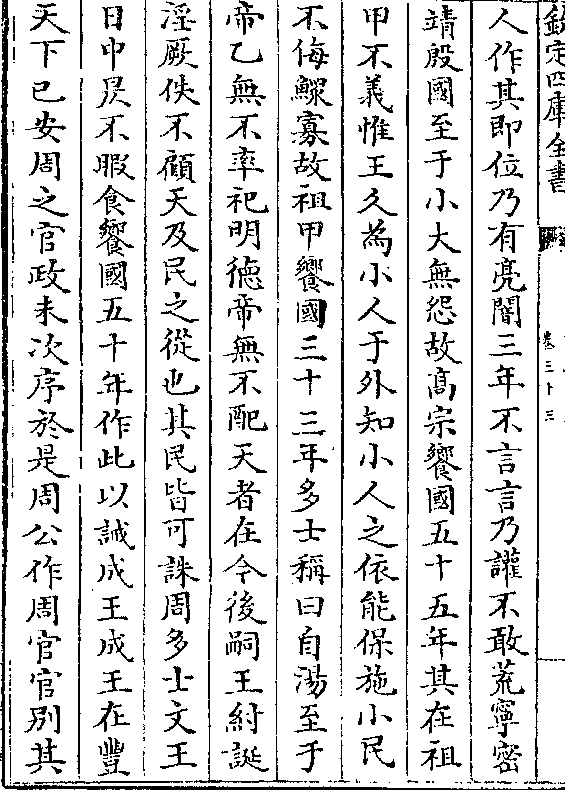 欽定四庫全書
卷三十三
人作其即位乃有亮闇三年不言言乃讙不敢荒寧密
靖殷國至于小大無怨故髙宗饗國五十五年其在祖
甲不義惟王久為小人于外知小人之依能保施小民
不侮鰥寡故祖甲饗國三十三年多士稱曰自湯至于
帝乙無不率祀明徳帝無不配天者在今後嗣王紂誕
淫厥佚不顧天及民之從也其民皆可誅周多士文王
日中昃不暇食饗國五十年作此以誡成王成王在豐
天下已安周之官政未次序於是周公作周官官别其